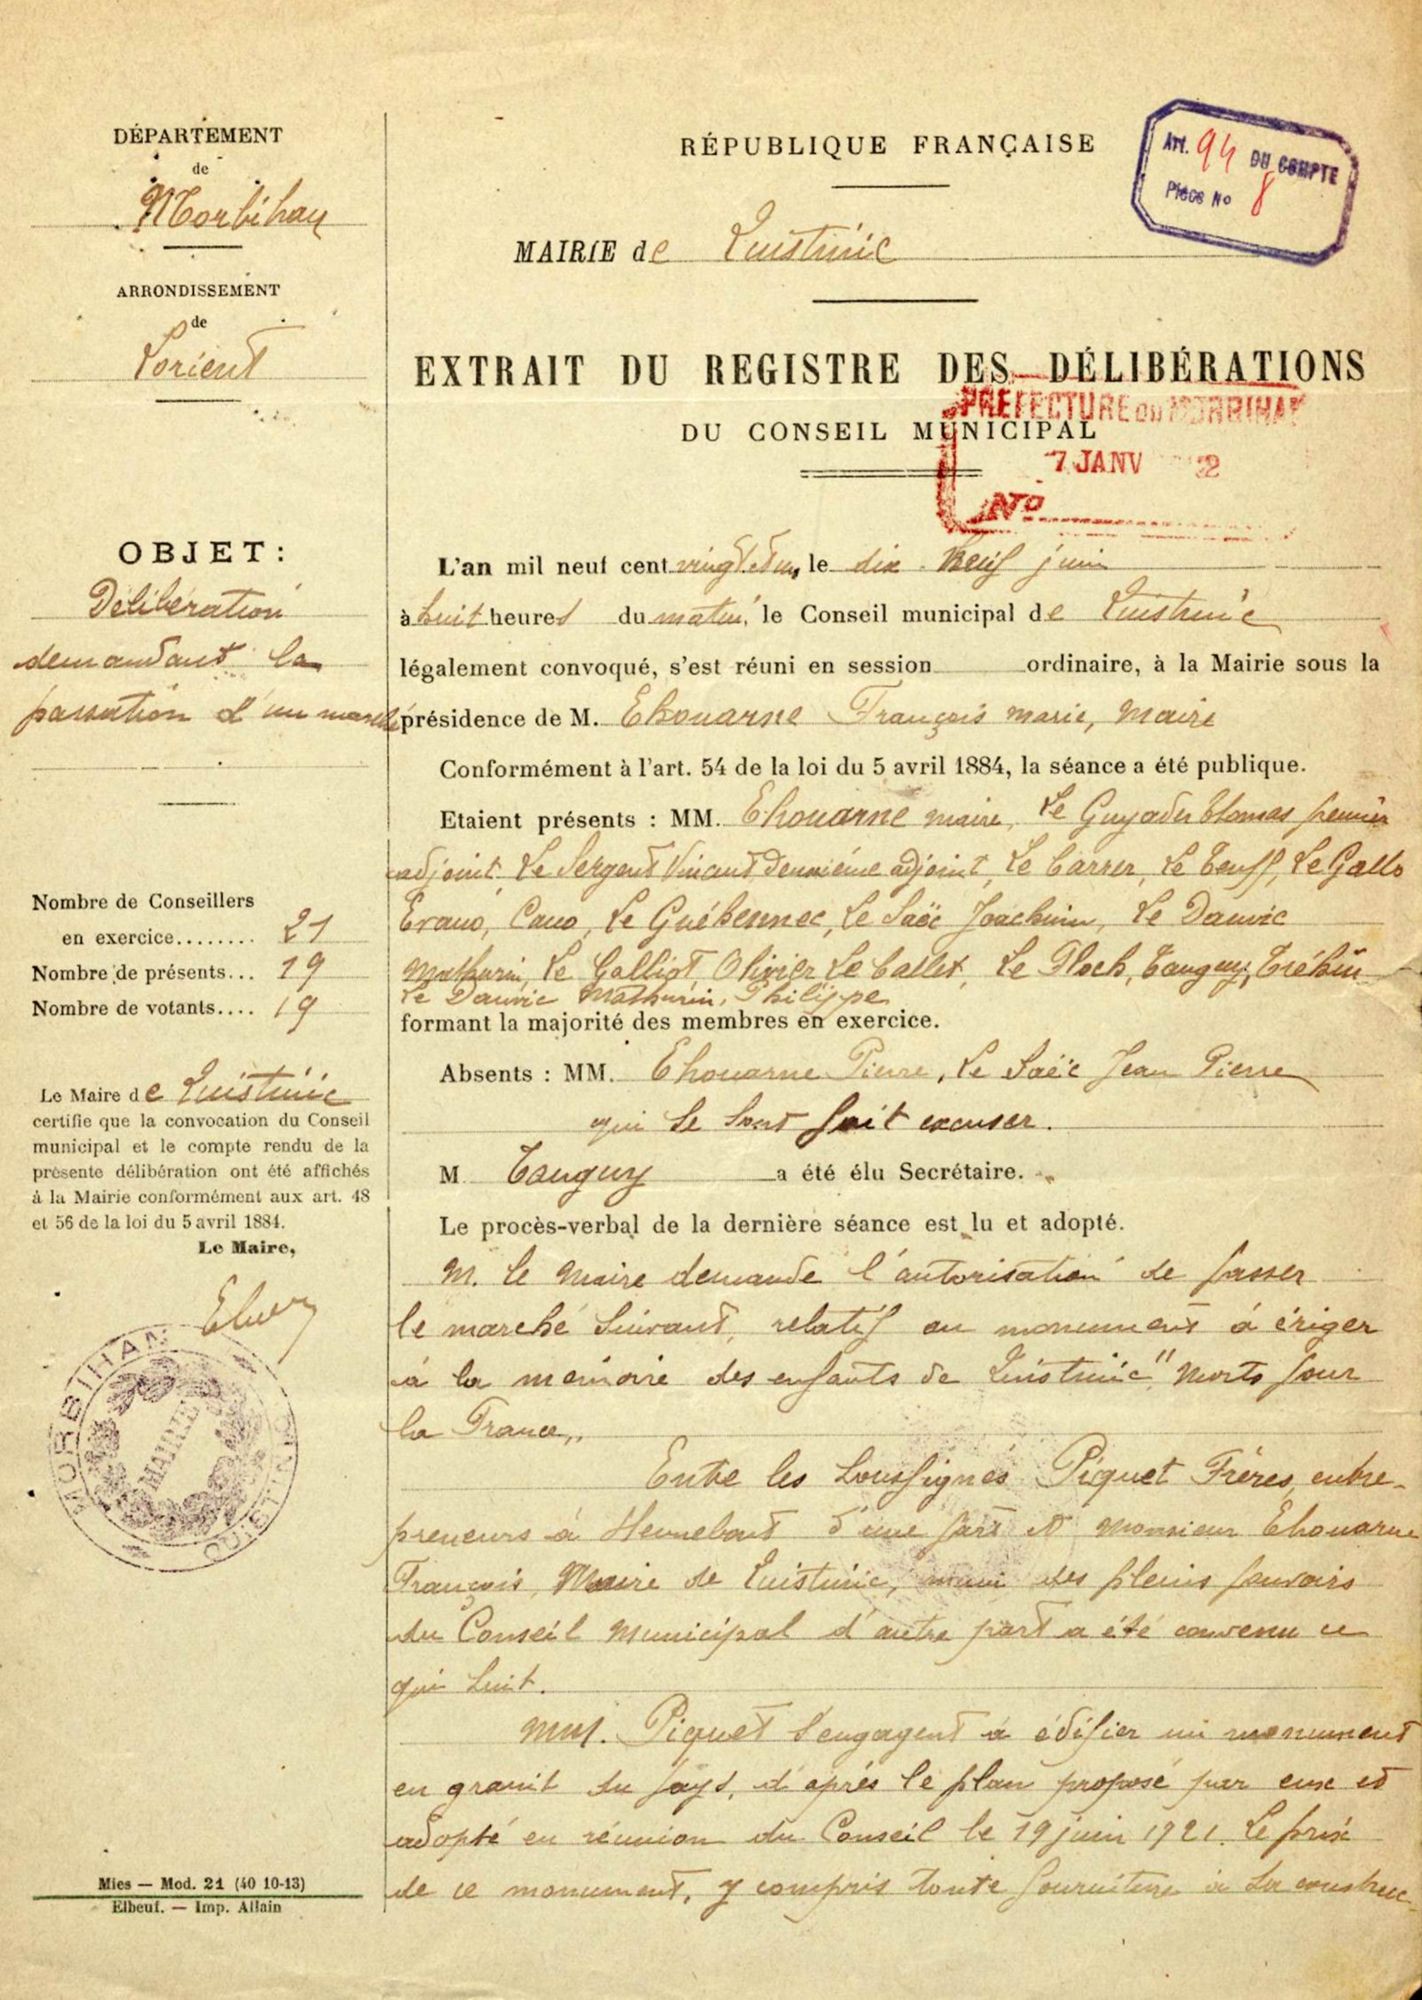 DÉPARTEMENT
de
Morbihan
ARRONDISSEMENT
de
Lorient
OBJET :
Délibération
demandant la
passation d'un marché
Nombre de Conseillers
en exercice........ 21
Nombre de présents... 19
Nombre de votants.... 19
Le Maire de Quistinic
certifie que la convocation du Conseil
municipal et le compte rendu de la
présente délibération ont été affichés
à la Mairie conformément aux art. 48
et 56 de la loi du 5 avril 1884.
Le Maire,
MORBIHAN
MAIRIE
QUISTINIC
Mies — Mod. 21 (40 10-13)
Elbeuf. — Imp. Allain
RÉPUBLIQUE FRANÇAISE
Art. 94 DU COMPTE
Pièce No 8
MAIRIE de Quistinic
EXTRAIT DU REGISTRE DES DÉLIBÉRATIONS
PREFECTURE DU MORBIHAN
DU CONSEIL MUNICIPAL
7 JANV 2
No
L'an mil neuf cent vingt et un, le dix neuf juin
à huit heures du matin, le Conseil municipal de Quistinic
légalement convoqué, s'est réuni en session ordinaire, à la Mairie sous la
présidence de M. Ehouarne François Marie, Maire
Conformément à l'art. 54 de la loi du 5 avril 1884, la séance a été publique.
Etaient présents : MM. Ehouarne maire, Le Guyader Thomas premier
adjoint, Le Sergent Vincent deuxième adjoint, Le Carrer, Le Teuff, Le Gallo
Evano, Cano, Le Guéhennec, Le Saëc Joachim, Le Dauvic
Mathurin, Le Galliot, Olivier, Le Callet, Le Floch, Tanguy, Tréhin
Le Dauvic Mathurin, Philippe
formant la majorité des membres en exercice.
Absents : MM. Ehouarne Pierre, Le Saëc Jean Pierre
qui se sont fait excuser.
M Tanguy a été élu Secrétaire.
Le procès-verbal de la dernière séance est lu et adopté.
M. le Maire demande l'autorisation de passer
le marché suivant, relatif au monument à ériger
à la mémoire des enfants de Quistinic "Morts pour
la France,,
Entre les soussignés Piquet Frères, entre-
preneurs à Hennebont d'une part et Monsieur Ehouarne
François, Maire de Quistinic, muni des pleins pouvoirs
du Conseil Municipal d'autre part a été convenu ce
qui suit.
MM. Piquet s'engagent à édifier un monument
en granit du pays, d'après le plan proposé par eux et
adopté en réunion du Conseil le 19 juin 1921. Le prix
de ce monument, y compris toute fourniture à sa construc-